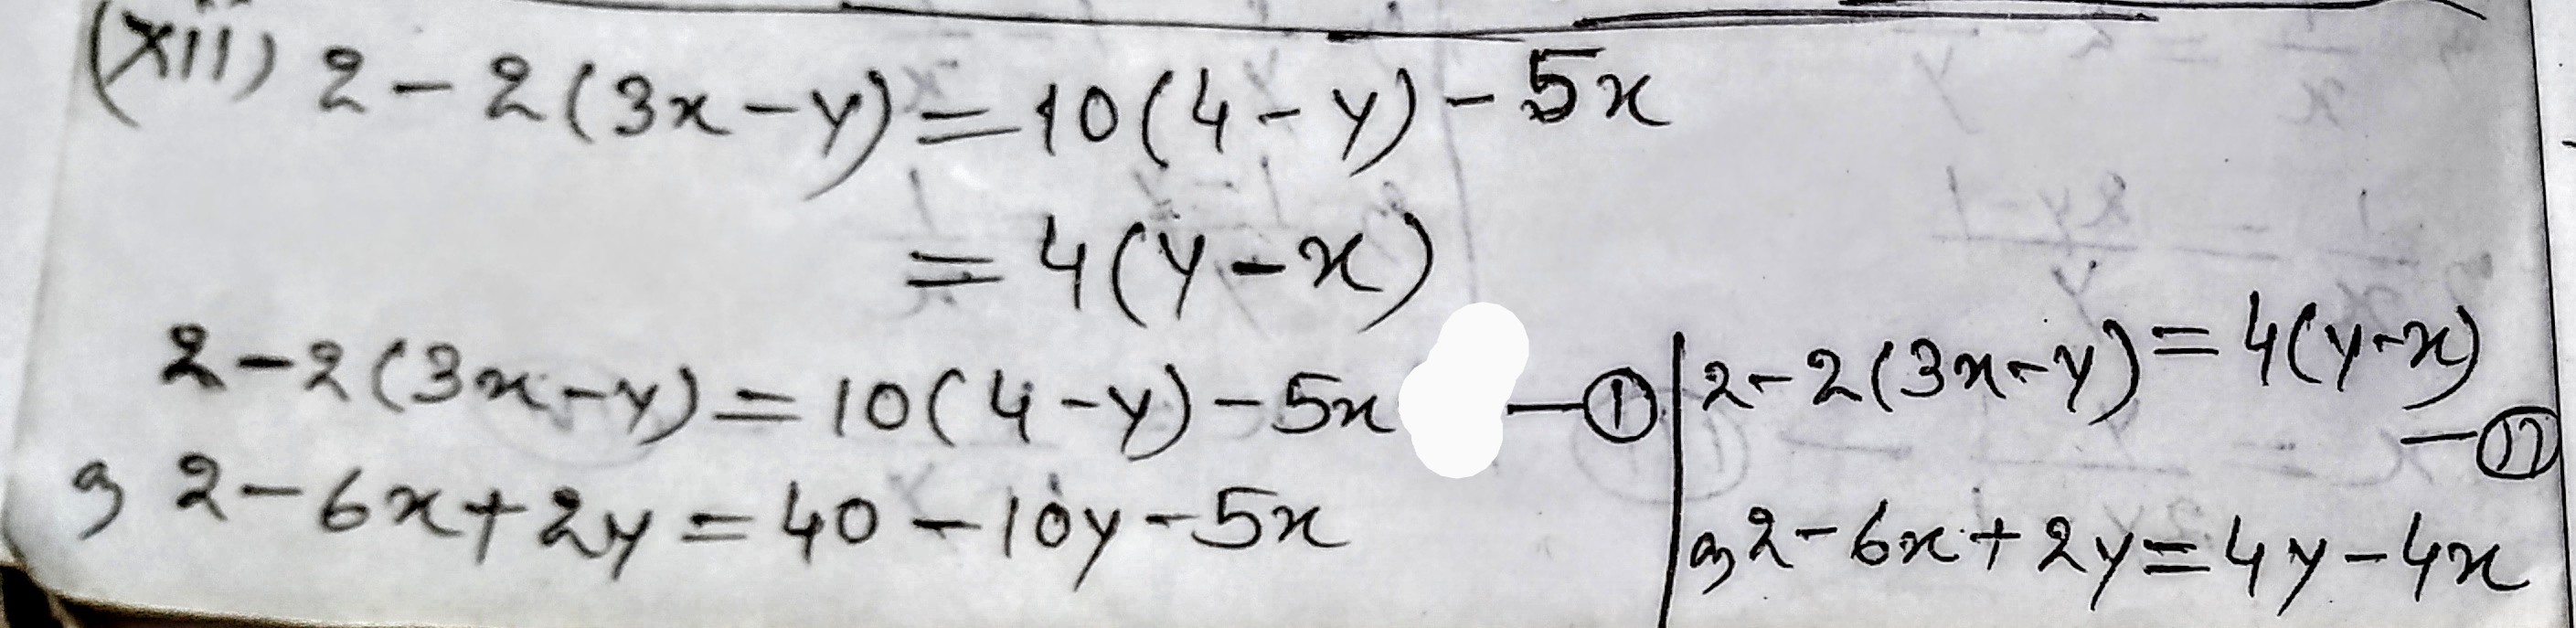 (xii) 2 - 2(3x - y) = 10(4 - y) - 5x
= 4(y - x)
2 - 2(3x - y) = 10(4 - y) - 5x — ①
বা 2 - 6x + 2y = 40 - 10y - 5x
2 - 2(3x - y) = 4(y - x)
— ⑪
বা 2 - 6x + 2y = 4y - 4x